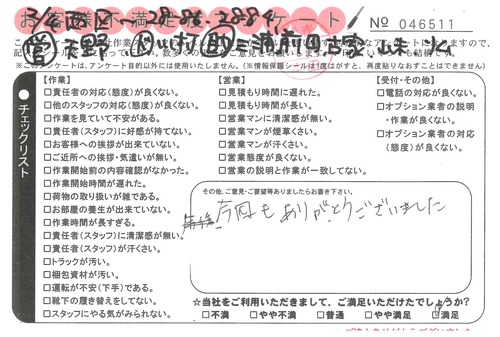 お客様 満足 ート
№ 046511
※このアンケートは、アンケート目的以外には使用いたしません。（※情報保護シールは1度はがすと、再度貼りなおすことはできません）
チェックリスト
【作業】
□責任者の対応（態度）が良くない。
□他のスタッフの対応（態度）が良くない。
□作業を見ていて不安がある。
□責任者（スタッフ）に好感が持てない。
□お客様への挨拶が出来ていない。
□ご近所への挨拶・気遣いが無い。
□作業開始前の内容確認がなかった。
□作業開始時間が遅れた。
□荷物の取り扱いが雑である。
□お部屋の養生が出来ていない。
□作業時間が長すぎる。
□責任者（スタッフ）に清潔感が無い。
□責任者（スタッフ）が汗くさい。
□トラックが汚い。
□梱包資材が汚い。
□運転が不安（下手）である。
□靴下の履き替えをしてない。
□スタッフにやる気がみられない。
【営業】
□見積もり時間に遅れた。
□見積もり時間が長い。
□営業マンに清潔感が無い。
□営業マンが煙草くさい。
□営業マンが汗くさい。
□営業態度が良くない。
□営業の説明と作業が一致してない。
【受付・その他】
□電話の対応が良くない。
□オプション業者の説明
・作業が良くない。
□オプション業者の対応
（態度）が良くない。
その他、ご意見・ご要望等ありましたらお書き下さい。
今回も ありがとうございました
☆当社をご利用いただきまして、ご満足いただけたでしょうか？
□不満 □やや不満 □普通 □やや満足 □満足